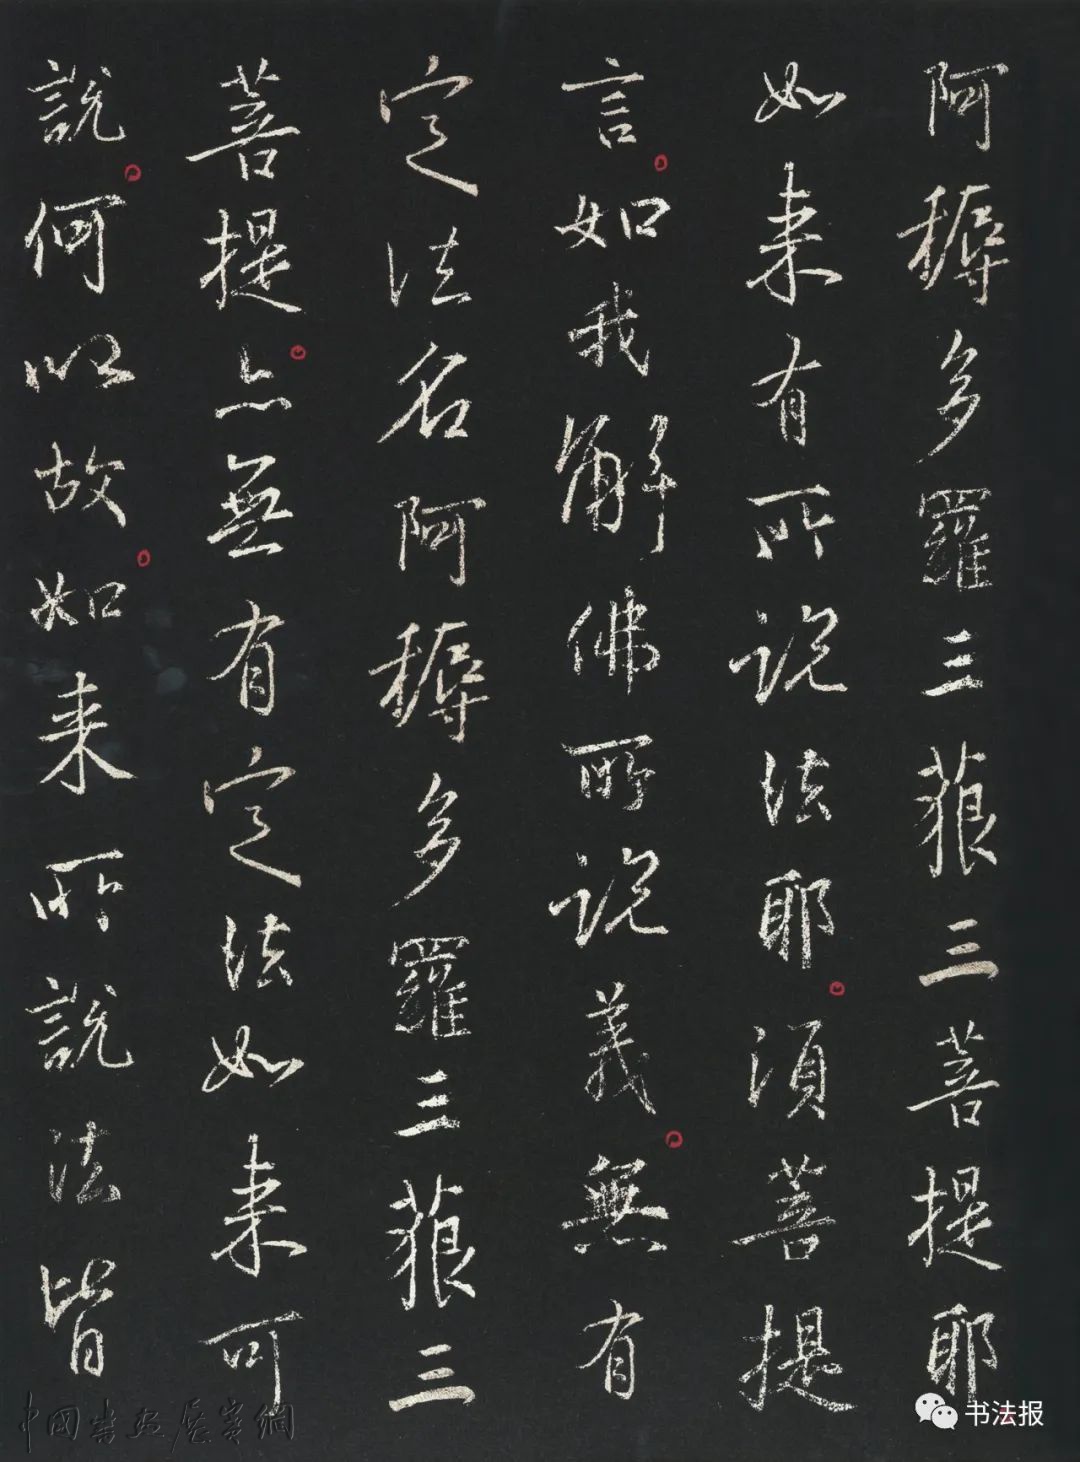 阿耨多羅三藐三菩提耶
如来有所説法耶須菩提
言如我解佛所説義無有
定法名阿耨多羅三藐三
菩提亦無有定法如来可
說何以故如来所說法皆
中國書法展賽網
书法报